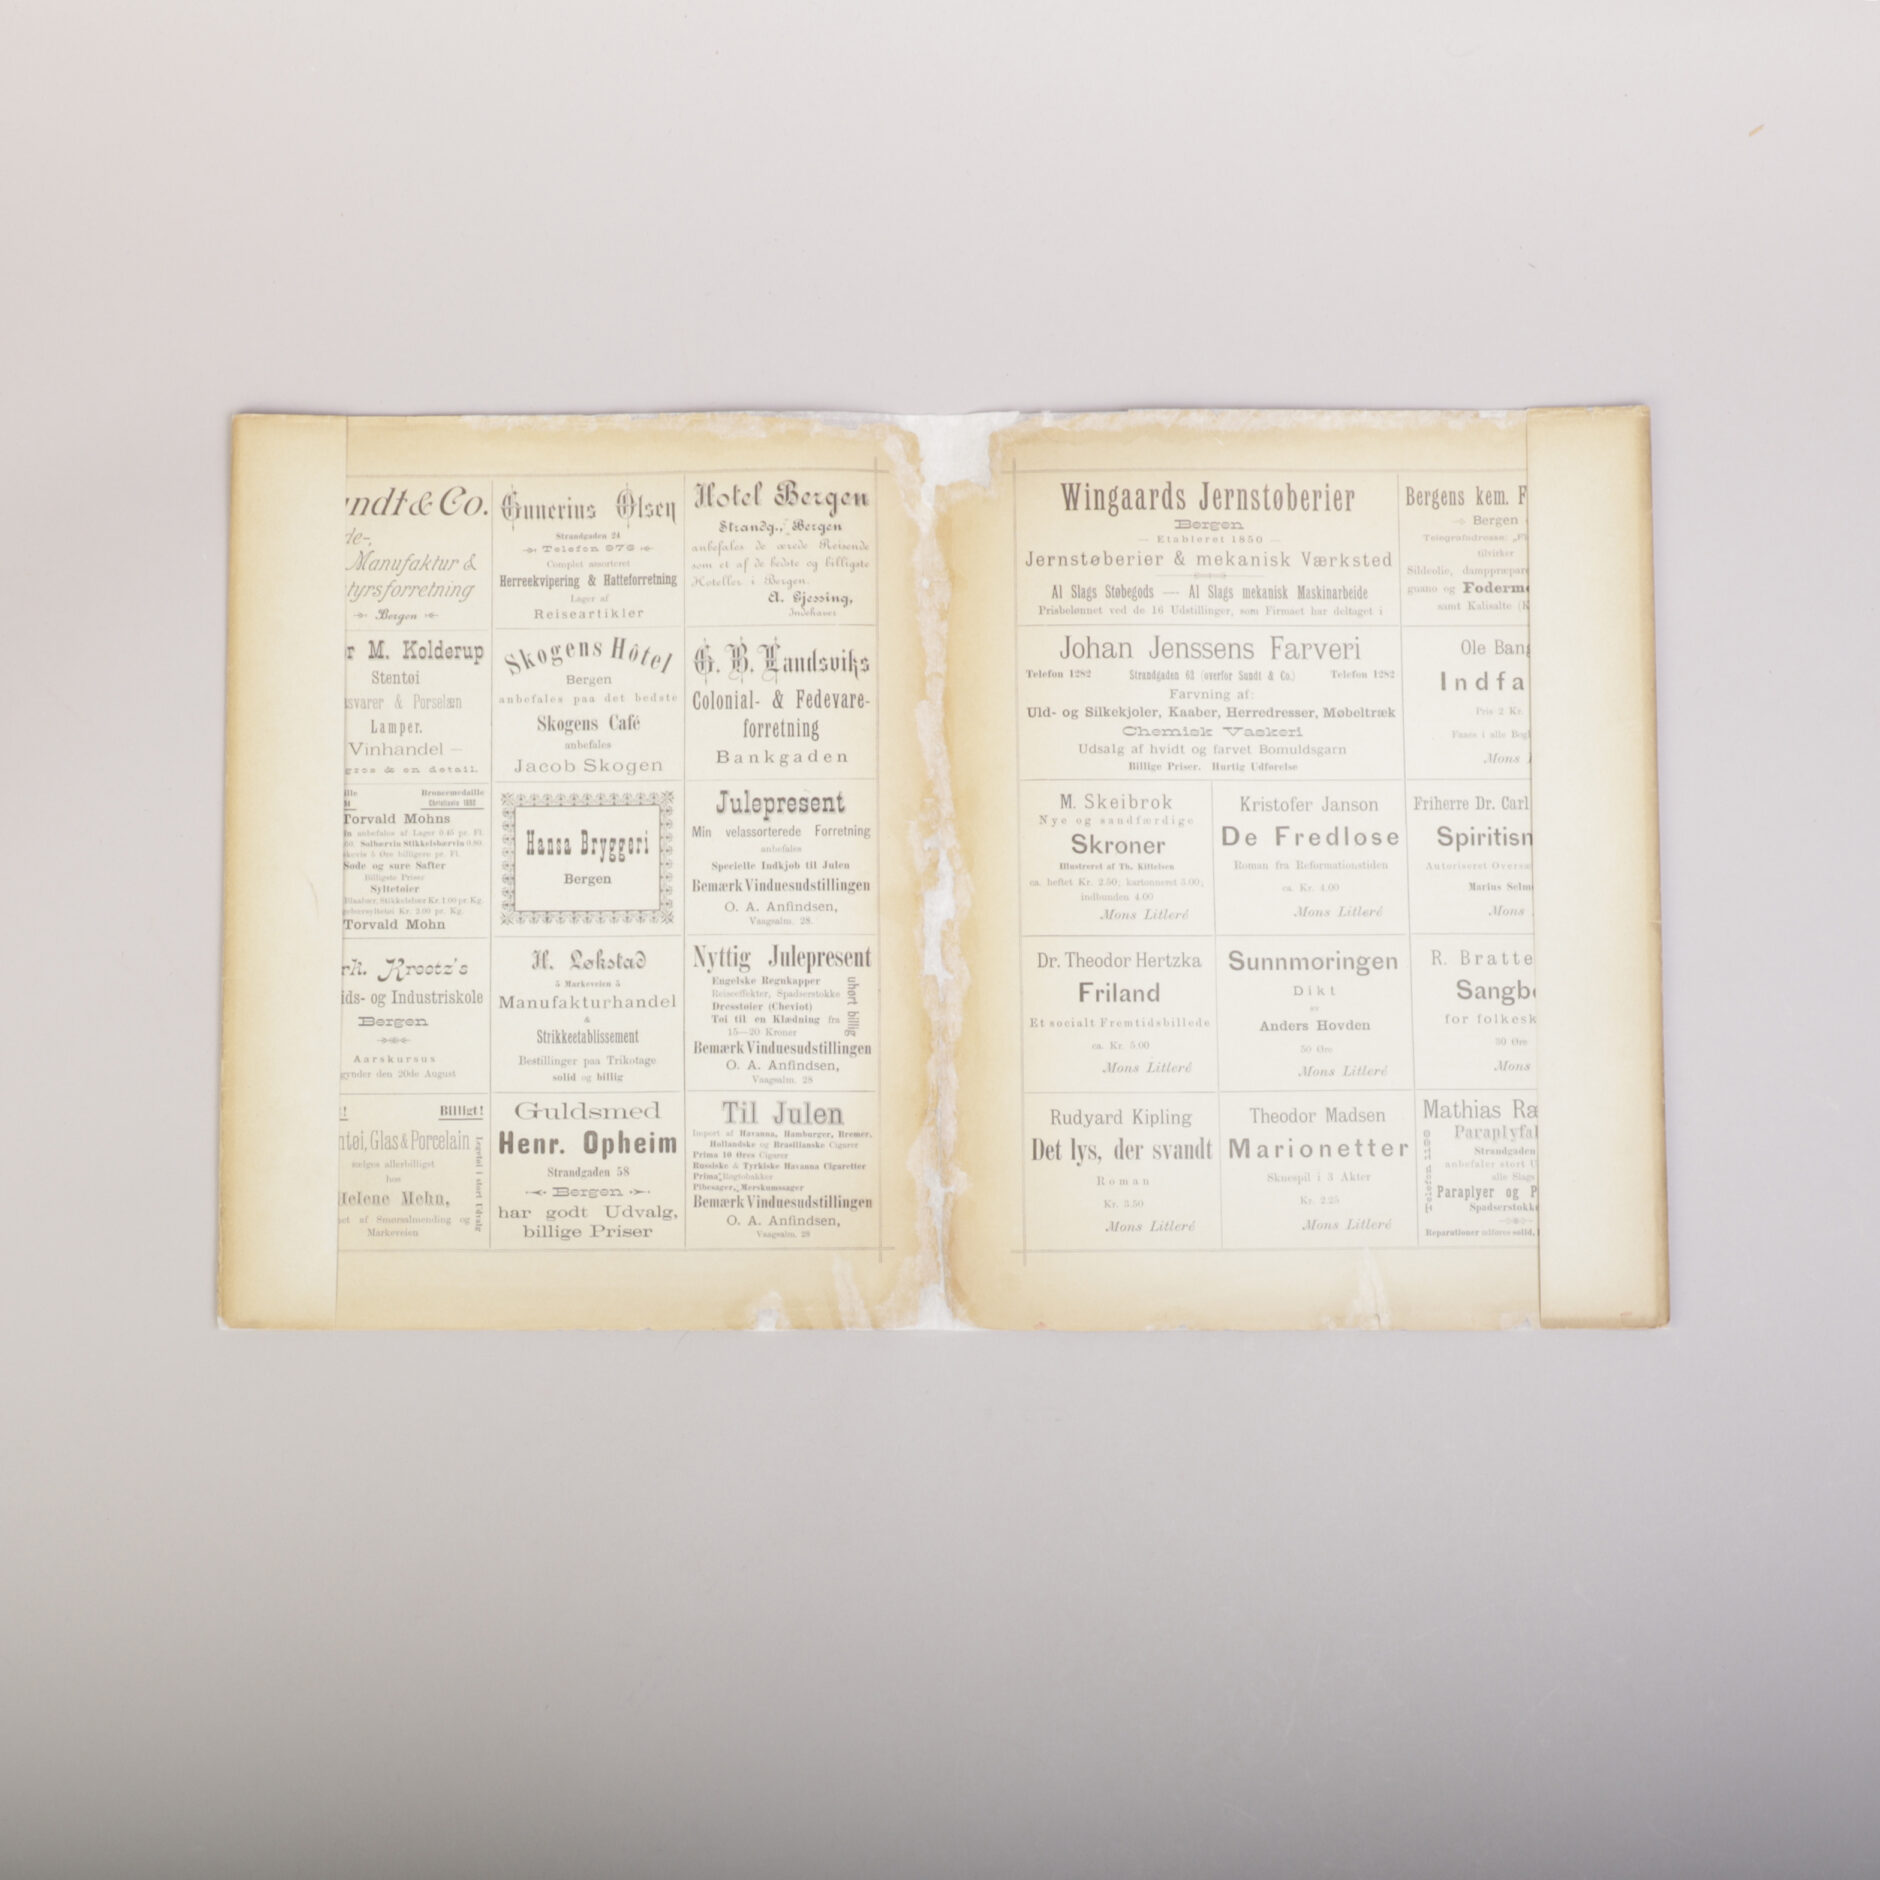 ndt & Co.
de-,
Manufaktur &
tyrsforretning
Bergen
r M. Kolderup
Stentøi
svarer & Porselæn
Lamper.
Vinhandel —
gros & en detail.
Broncemedaille
Christiania 1880
Torvald Mohns
anbefales af Lager 0.45 pr. Fl.
Solbærvin Stikkelsbærvin 0.80.
5 Øre billigere pr. Fl.
Søde og sure Safter
Billigste Priser
Syltetøier
Blaabær, Stikkelsbær Kr. 1.00 pr. Kg.
Kr. 2.00 pr. Kg.
Torvald Mohn
rk. Krootz's
ids- og Industriskole
Bergen
Aarskursus
gynder den 20de August
t! Billigt!
ntøi, Glas & Porcelain
sælges allerbilligst
hos
Helene Mehn,
et af Smørsalmending og
Markeveien
Legetøi i stort Udvalg
Gunerius Olsen
Strandgaden 24
Telefon 976
Complet assorteret
Herreekvipering & Hatteforretning
Lager af
Reiseartikler
Skogens Hôtel
Bergen
anbefales paa det bedste
Skogens Café
anbefales
Jacob Skogen
Hansa Bryggeri
Bergen
H. Løkstad
5 Markeveien 5
Manufakturhandel
&
Strikkeetablissement
Bestillinger paa Trikotage
solid og billig
Guldsmed
Henr. Opheim
Strandgaden 58
Bergen
har godt Udvalg,
billige Priser
Hotel Bergen
Strandg., Bergen
anbefales de ærede Reisende
som et af de bedste og billigste
Hoteller i Bergen.
A. Gjessing,
Indehaver
G. B. Landsviks
Colonial- & Fedevare-
forretning
Bankgaden
Julepresent
Min velassorterede Forretning
anbefales
Specielle Indkjøb til Julen
Bemærk Vinduesudstillingen
O. A. Anfindsen,
Vaagsalm. 28.
Nyttig Julepresent
Engelske Regnkapper
Reiseeffekter, Spadserstokke
Dresstøier (Cheviot)
Tøi til en Klædning fra
15—20 Kroner
uhørt billig
Bemærk Vinduesudstillingen
O. A. Anfindsen,
Vaagsalm. 28
Til Julen
Import af Havanna, Hamburger, Bremer,
Hollandske og Brasilianske Cigarer
Prima 10 Øres Cigarer
Russiske & Tyrkiske Havanna Cigaretter
Prima Røgtobakker
Pibesager, Merskumssager
Bemærk Vinduesudstillingen
O. A. Anfindsen,
Vaagsalm. 28
Wingaards Jernstøberier
Bergen
— Etableret 1850 —
Jernstøberier & mekanisk Værksted
Al Slags Støbegods — Al Slags mekanisk Maskinarbeide
Prisbelønnet ved de 16 Udstillinger, som Firmaet har deltaget i
Johan Jenssens Farveri
Telefon 1282 Strandgaden 62 (overfor Sundt & Co.) Telefon 1282
Farvning af:
Uld- og Silkekjoler, Kaaber, Herredresser, Møbeltræk
Chemisk Vaskeri
Udsalg af hvidt og farvet Bomuldsgarn
Billige Priser. Hurtig Udførelse
M. Skeibrok
Nye og sandfærdige
Skroner
Illustreret af Th. Kittelsen
ca. heftet Kr. 2.50; kartonneret 3.00;
indbunden 4.00
Mons Litleré
Kristofer Janson
De Fredlose
Roman fra Reformationstiden
ca. Kr. 4.00
Mons Litleré
Dr. Theodor Hertzka
Friland
Et socialt Fremtidsbillede
ca. Kr. 5.00
Mons Litleré
Sunnmoringen
Dikt
av
Anders Hovden
50 Øre
Mons Litleré
Rudyard Kipling
Det lys, der svandt
Roman
Kr. 3.50
Mons Litleré
Theodor Madsen
Marionetter
Skuespil i 3 Akter
Kr. 2.25
Mons Litleré
Bergens kem. F
Bergen
Telegrafadresse:
tilvirker
Sildeolie, damppræpar
guano og Foderme
samt Kalisalte (K
Ole Bang
Indfa
Pris 2 Kr.
Faaes i alle Bog
Mons
Friherre Dr. Carl
Spiritism
Autoriseret Oversæ
Marius Selm
Mons
R. Bratte
Sangbo
for folkesk
30 Øre
Mons
Mathias Ra
Paraplyfa
Strandgaden
anbefaler stort U
alle Slags
Paraplyer og P
Spadserstokk
Reparationer udføres solid,